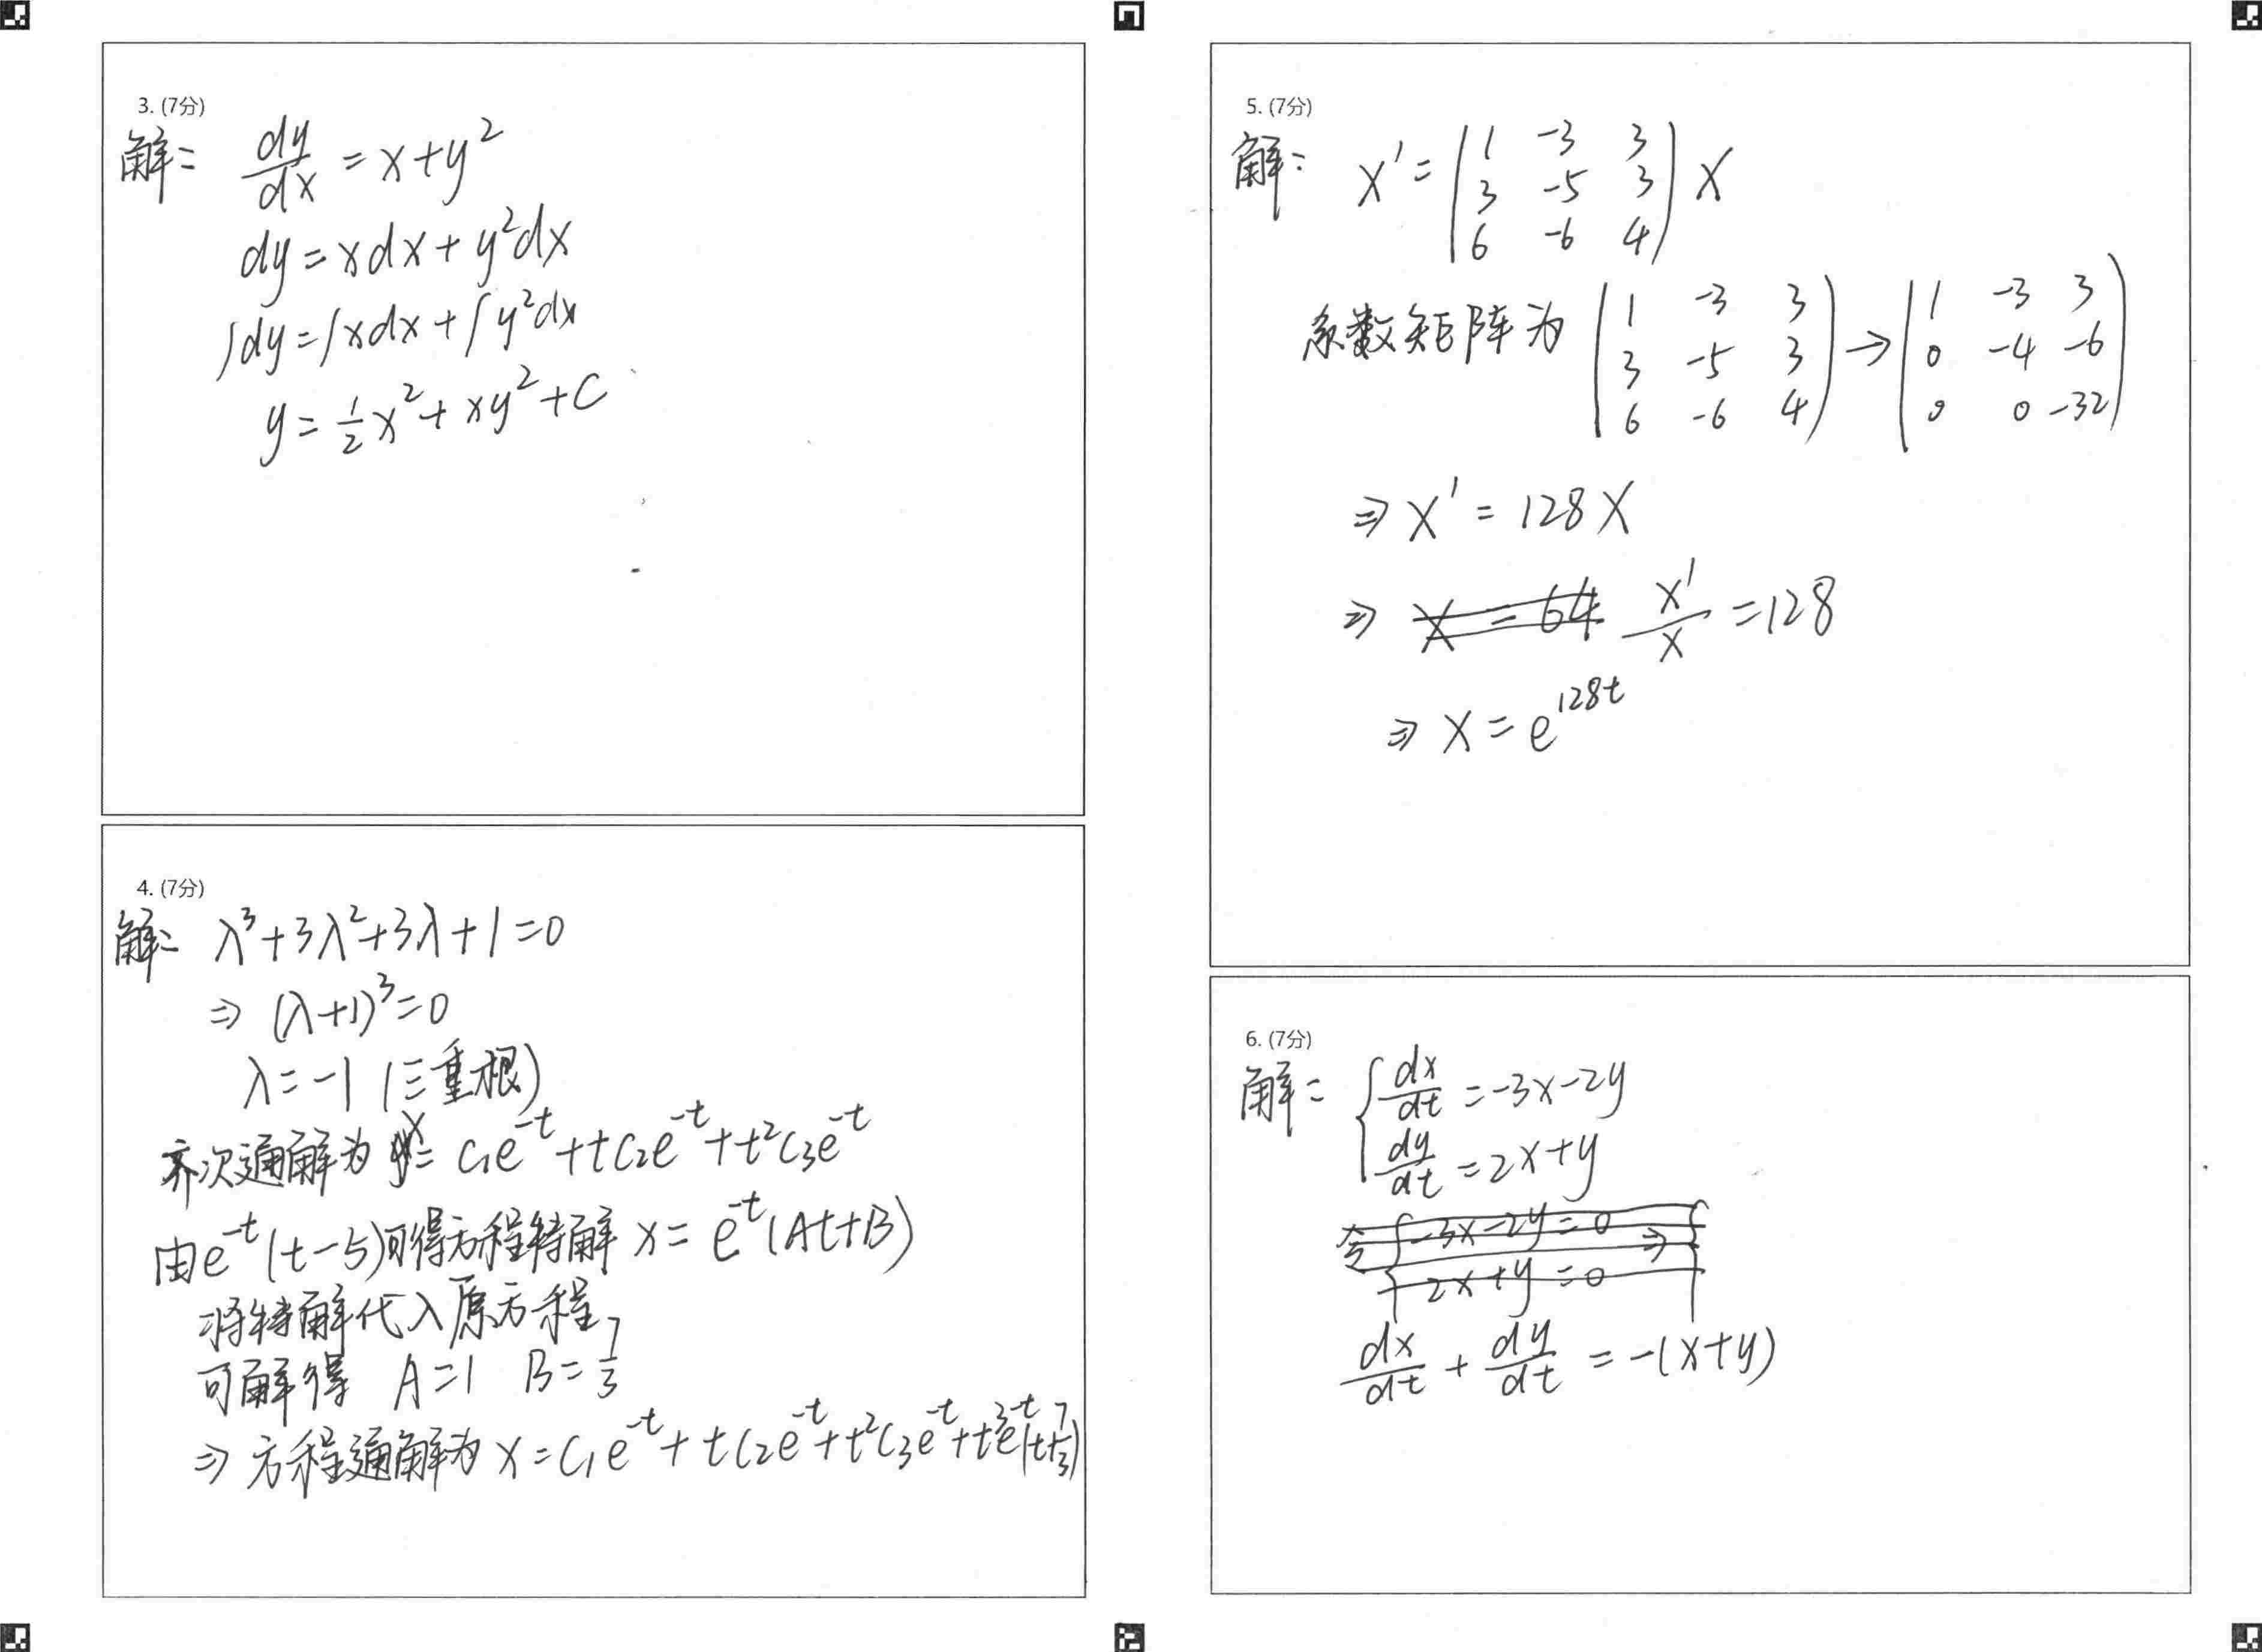 3. (7分)
解: dy/dx = x+y²
dy = xdx + y²dx
∫dy = ∫xdx + ∫y²dx
y = 1/2 x² + xy² + C
4. (7分)
解: λ³+3λ²+3λ+1=0
⇒ (λ+1)³=0
λ=-1 (三重根)
齐次通解为 x = C₁e^{-t} + tC₂e^{-t} + t²C₃e^{-t}
由e^{-t}(t-5)可得方程特解 x = e^{-t}(At+B)
将特解代入原方程
可解得 A=1 B=7/3
⇒ 方程通解为 x = C₁e^{-t} + tC₂e^{-t} + t²C₃e^{-t} + t³e^{-t}(t+7/3)
5. (7分)
解: X' = (1 -3 3
3 -5 3
6 -6 4) X
系数矩阵为 (1 -3 3
3 -5 3
6 -6 4) → (1 -3 3
0 -4 -6
0 0 -32)
⇒ X' = 128X
⇒ X = 64 X'/X = 128
⇒ X = e^{128t}
6. (7分)
解: { dx/dt = -3x-2y
dy/dt = 2x+y
令 { -3x-2y=0 ⇒ {
2x+y=0
dx/dt + dy/dt = -(x+y)